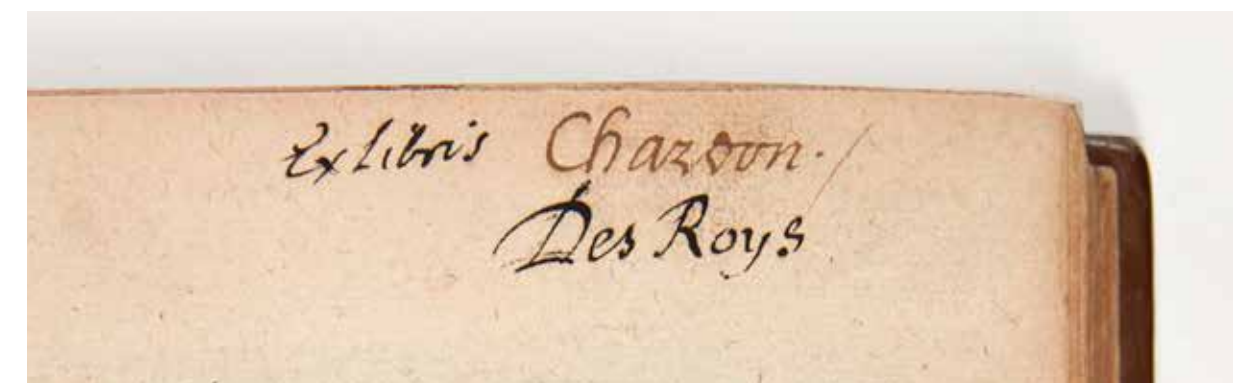 Ex libris Chardon.
Des Roys